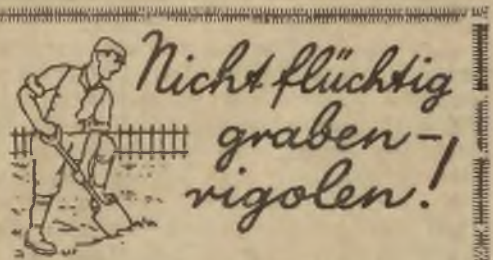 Nicht flüchtig
graben-
rigolen!